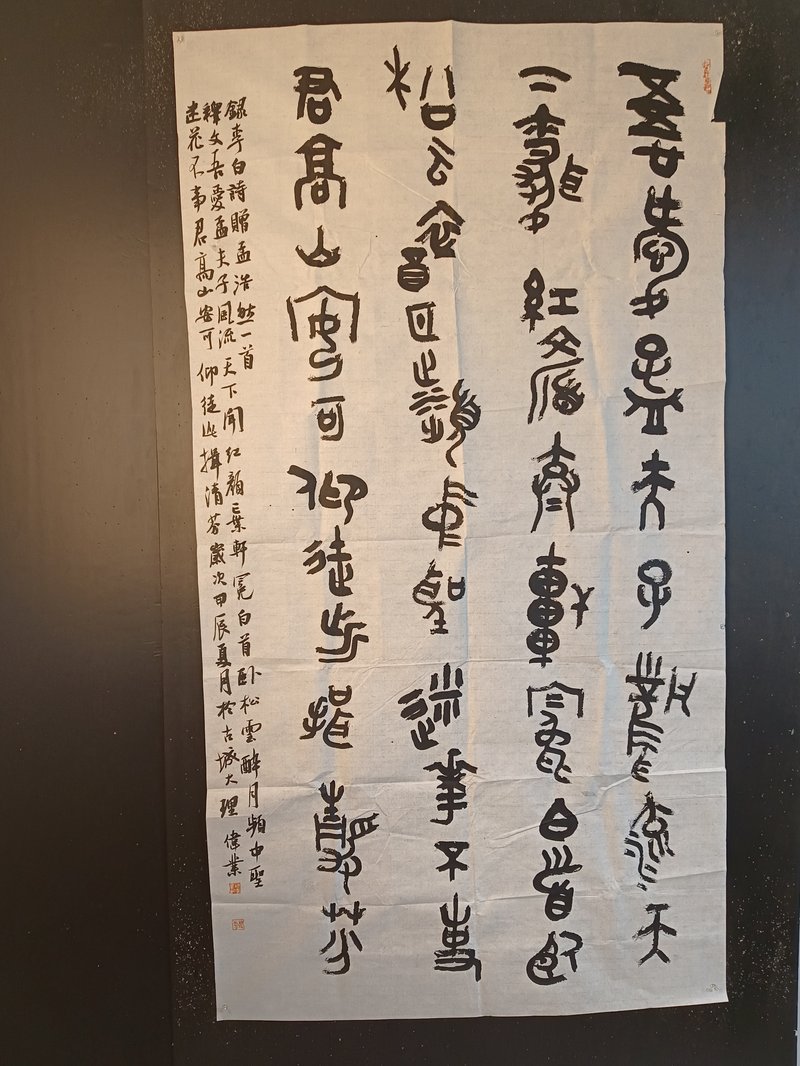 吾愛孟夫子風流天
下聞紅顏棄軒冕白首臥
松云醉月頻中聖迷花不事
君高山安可仰徒此揖清芬
録李白詩贈孟浩然一首
釋文吾愛孟夫子風流天下聞紅顏棄軒冕白首卧松雲醉月頻中聖
迷花不事君高山安可仰徒此揖清芬歲次甲辰夏月於古城大理偉業